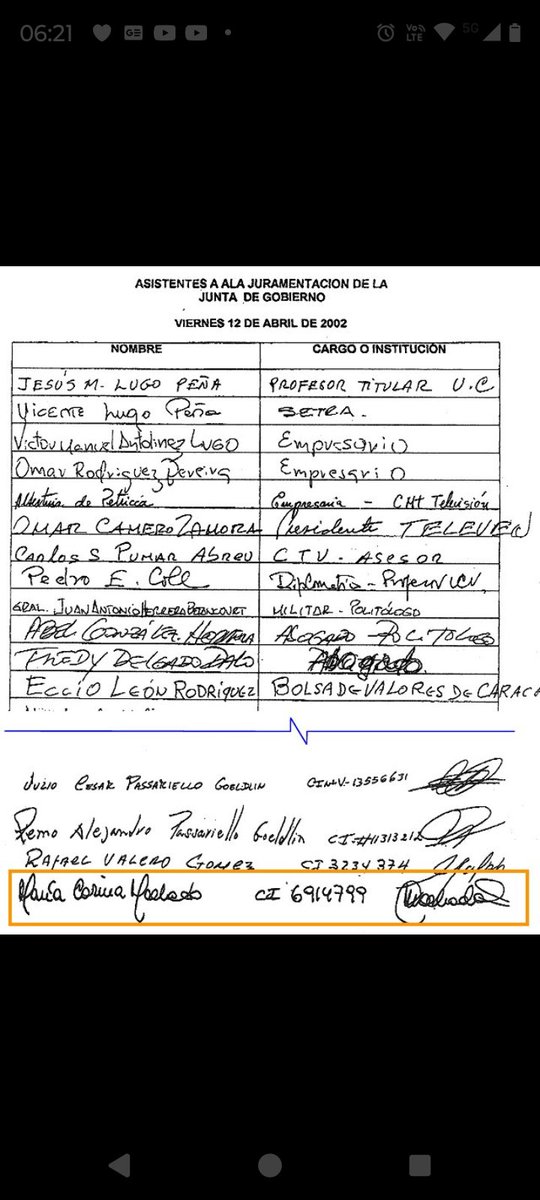 06:21
Vo) LTE 5G
ASISTENTES A ALA JURAMENTACION DE LA
JUNTA DE GOBIERNO
VIERNES 12 DE ABRIL DE 2002
NOMBRE CARGO O INSTITUCIÓN
JESÚS M. LUGO PEÑA PROFESOR TITULAR U.C
Vicente Lugo Peña SETRA.
Victor Manuel Antolinez LUGO Empresario
Omar Rodriguez Pereira Empresario
Albertina de Petricia Empresaria - CMT Televisión
OMAR CAMERO ZAMORA Presidente TELEVEN
CARLOS S PUMAR ABREU CTV - ASESOR
Pedro E. Coll Diplomático - Profesor UCV.
GRAL. JUAN ANTONIO HERRERA BETANCOURT MILITAR - POLITÓLOGO
ABEL GONZÁLEZ HERRERA ABOGADO - POLITOLOGO
FREDY DELGADO Abogado.
ECCIO LEÓN RODRIGUEZ BOLSA DE VALORES DE CARACA
JULIO CESAR PASSARIELLO GOELDLIN CI Nº V-13556631
Remo Alejandro Passariello Goeldlin CI #11313212
RAFAEL VALERO GOMEZ CI 3234374
María Corina Machado CI 6914799 Machado